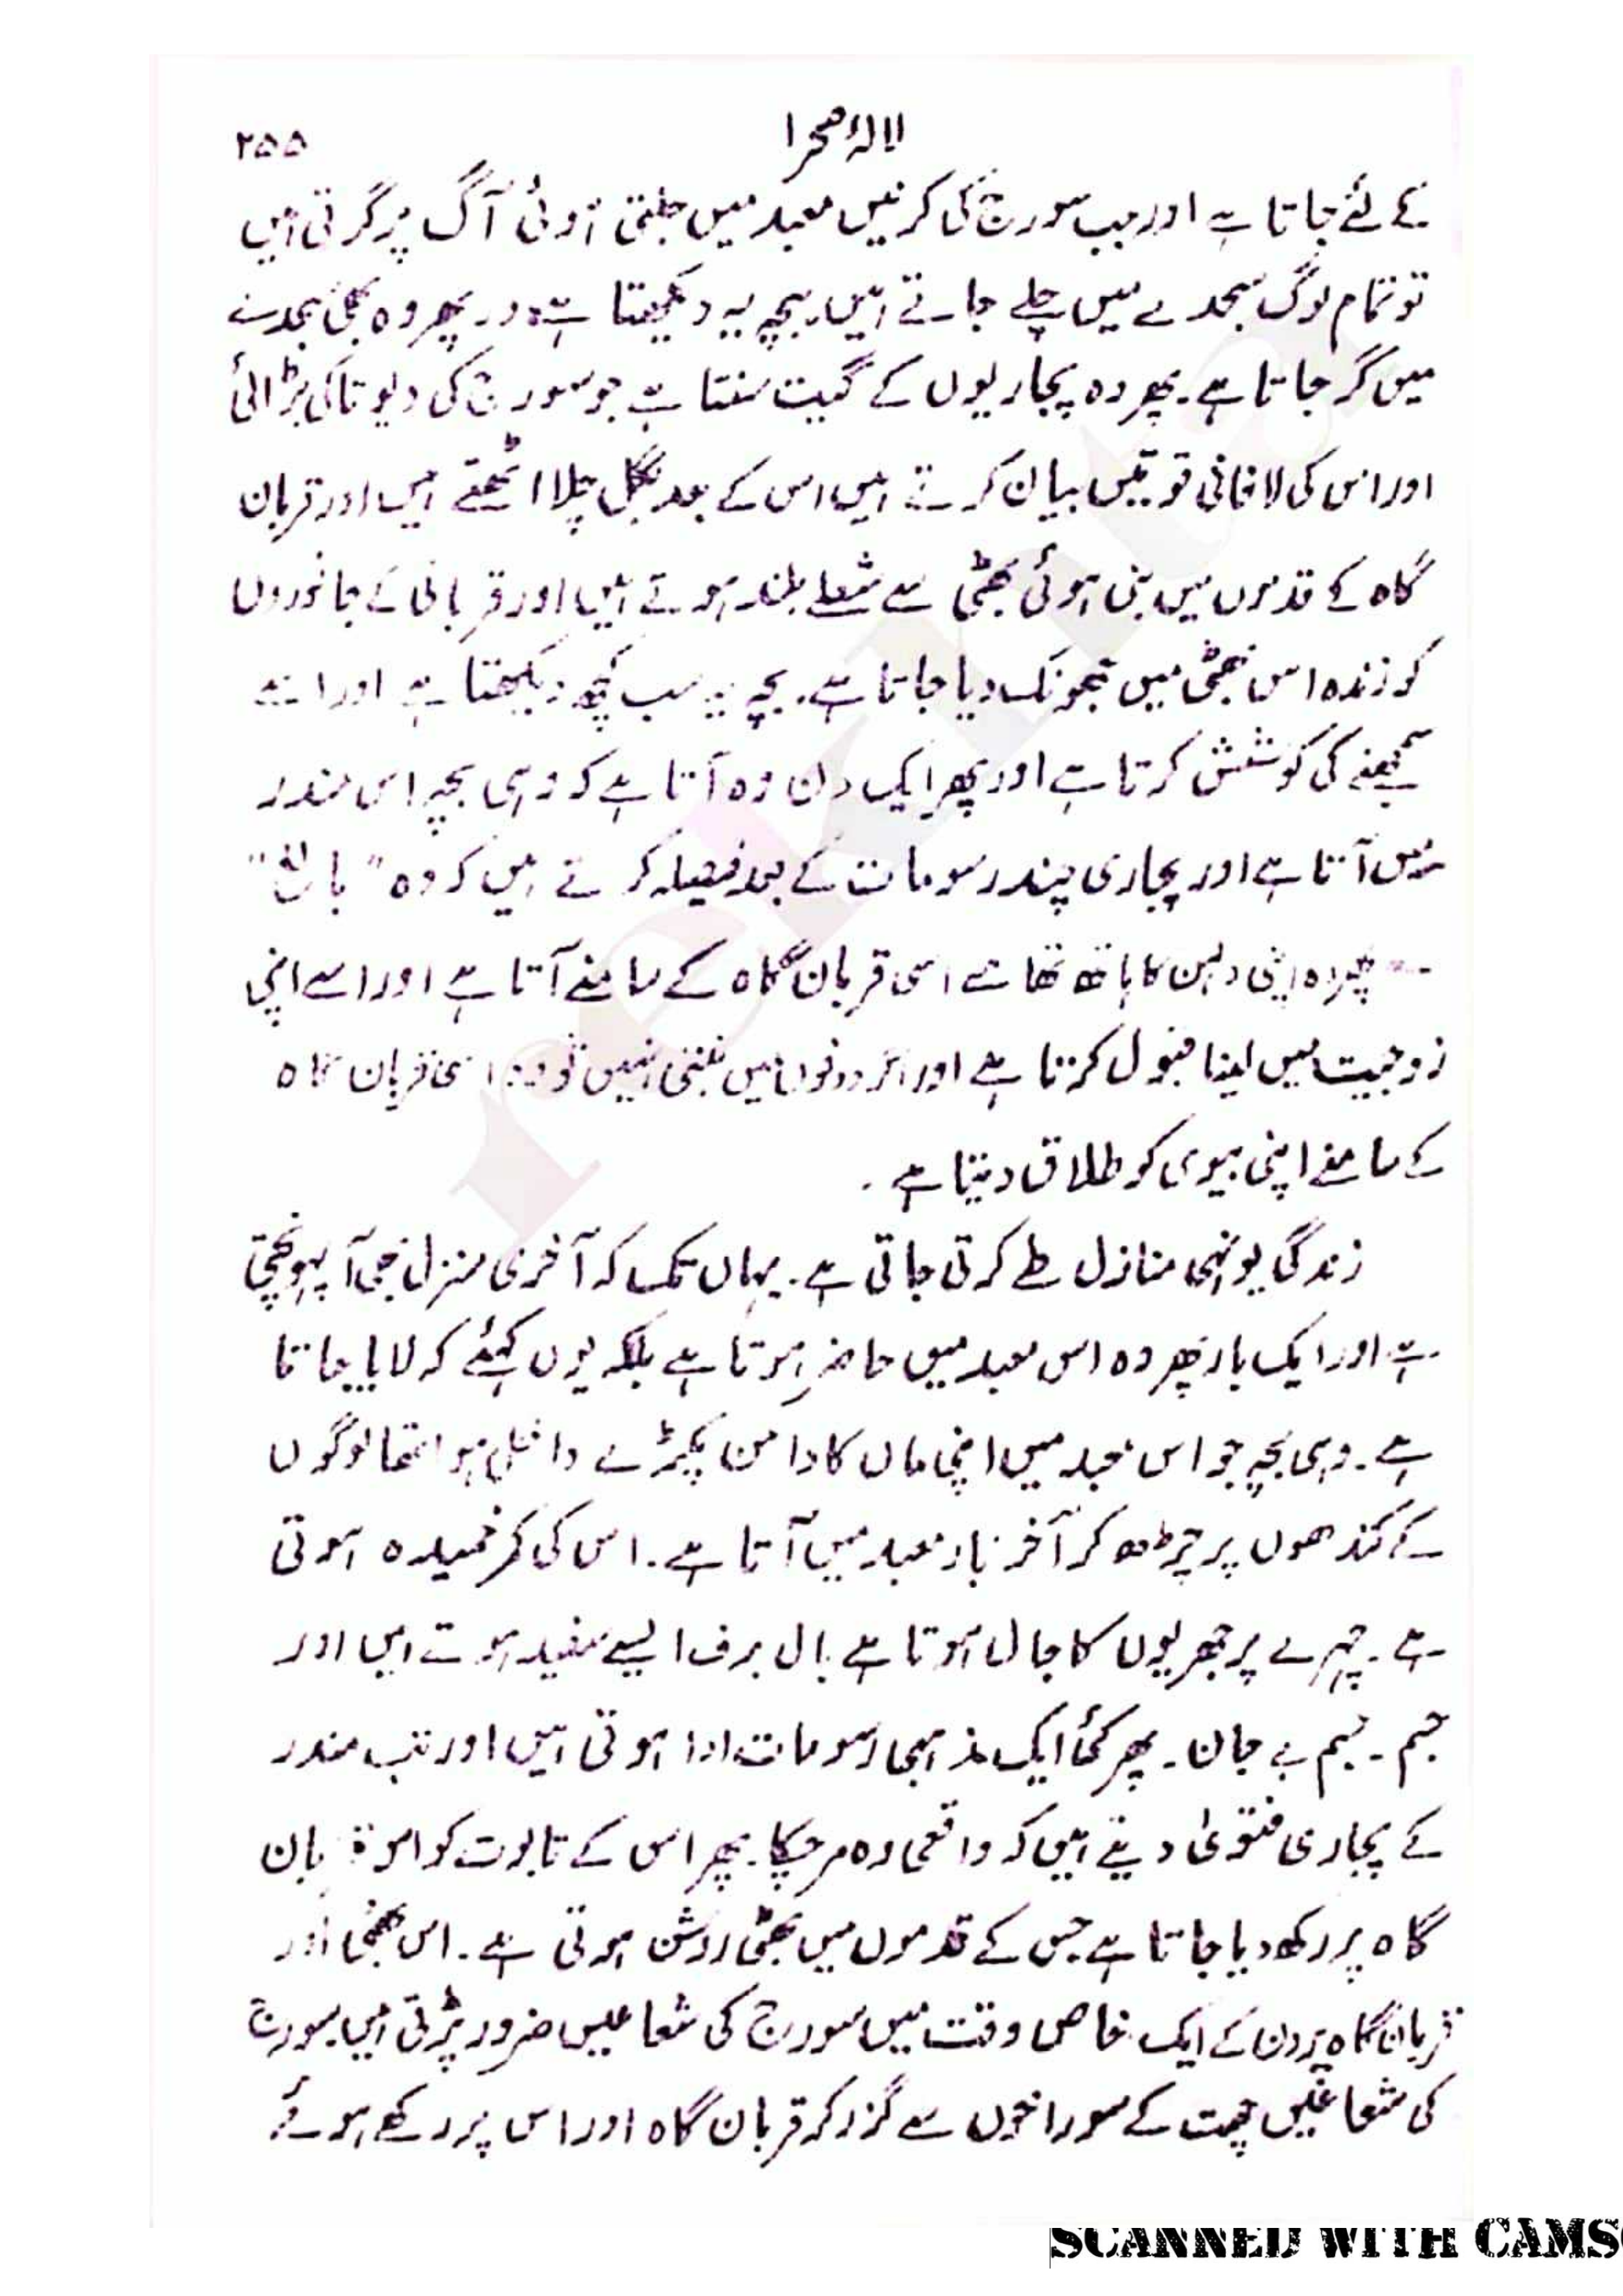 لالۂ صحرا ۲۵۵
کے لئے جاتا ہے اور جب سورج کی کرنیں معبد میں جلتی ہوئی آگ پر گرتی ہیں
تو تمام لوگ سجدے میں چلے جاتے ہیں۔ بچہ یہ دیکھتا ہے اور پھر وہ بھی سجدے
میں گر جاتا ہے۔ پھر وہ پجاریوں کے گیت سنتا ہے جو سورج کی دیوتا کی بڑائی
اور اس کی لافانی قوتیں بیان کرتے ہیں اس کے بعد بگل چلا اٹھتے ہیں اور قربان
گاہ کے قدموں میں بنی ہوئی بھٹی سے شعلے بلند ہوتے ہیں اور قربانی کے جانوروں
کو زندہ اس بھٹی میں جھونک دیا جاتا ہے۔ بچہ یہ سب کچھ دیکھتا ہے اور اسے
سمجھنے کی کوشش کرتا ہے اور پھر ایک دن وہ آتا ہے کہ وہی بچہ اس مندر
میں آتا ہے اور پجاری چند رسومات کے بعد فیصلہ کرتے ہیں کہ وہ "بالغ"
پھر وہ اپنی دلہن کا ہاتھ تھامے اسی قربان گاہ کے سامنے آتا ہے اور اسے اپنی
زوجیت میں لینا قبول کرتا ہے اور اگر دونوں میں بنتی نہیں تو وہ اسی قربان گاہ
کے سامنے اپنی بیوی کو طلاق دیتا ہے۔
زندگی یونہی منازل طے کرتی جاتی ہے۔ یہاں تک کہ آخری منزل بھی آ پہونچتی
ہے اور ایک بار پھر وہ اس معبد میں حاضر ہوتا ہے بلکہ یوں کہئے کہ لایا جاتا
ہے۔ وہی بچہ جو اس معبد میں اپنی ماں کا دامن پکڑے داخل ہوا تھا لوگوں
کے کندھوں پر چڑھ کر آخر بار معبد میں آتا ہے۔ اس کی کمر خمیدہ ہوتی
ہے۔ چہرے پر جھریوں کا جال ہوتا ہے بال برف ایسے سفید ہوتے ہیں اور
جسم۔ جسم بے جان۔ پھر کئی ایک مذہبی رسومات ادا ہوتی ہیں اور تب مندر
کے پجاری فتویٰ دیتے ہیں کہ واقعی وہ مر چکا۔ پھر اس کے تابوت کو اس قربان
گاہ پر رکھ دیا جاتا ہے جس کے قدموں میں بھٹی روشن ہوتی ہے۔ اس بھٹی اور
قربان گاہ پر دن کے ایک خاص وقت میں سورج کی شعاعیں ضرور پڑتی ہیں سورج
کی شعاعیں چھت کے سوراخوں سے گزر کر قربان گاہ اور اس پر رکھے ہوئے
rekhta
SCANNED WITH CAMS